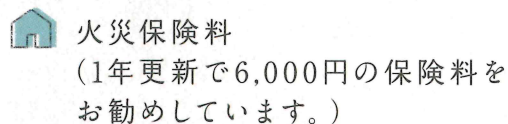 火災保険料
(1年更新で6,000円の保険料を
お勧めしています。)